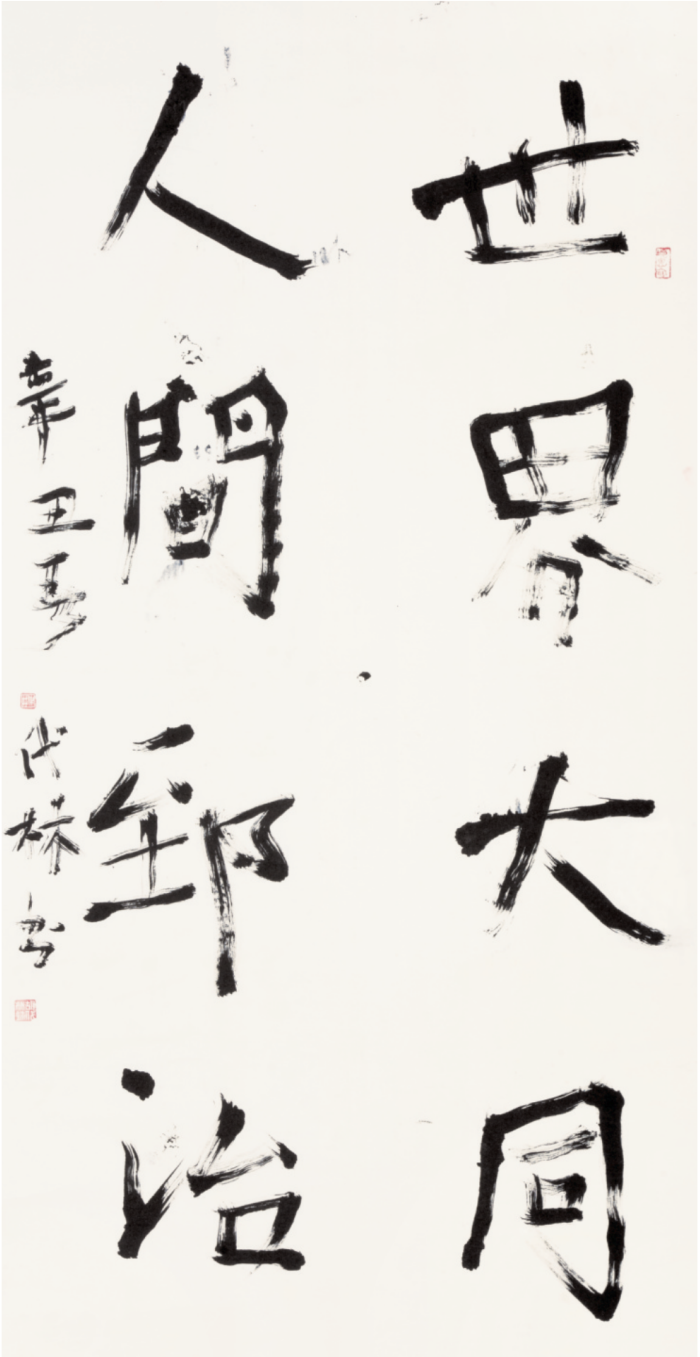 世界大同
人間郅治
辛丑 代林书